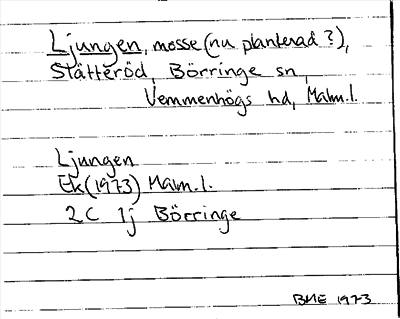 Ljungen, mosse (nu planterad?),
Slätteröd, Börringe sn,
Vemmenhögs hd, Malm.l.
Ljungen
Ek (1973) Malm.l.
2C 1j Börringe
BME 1973